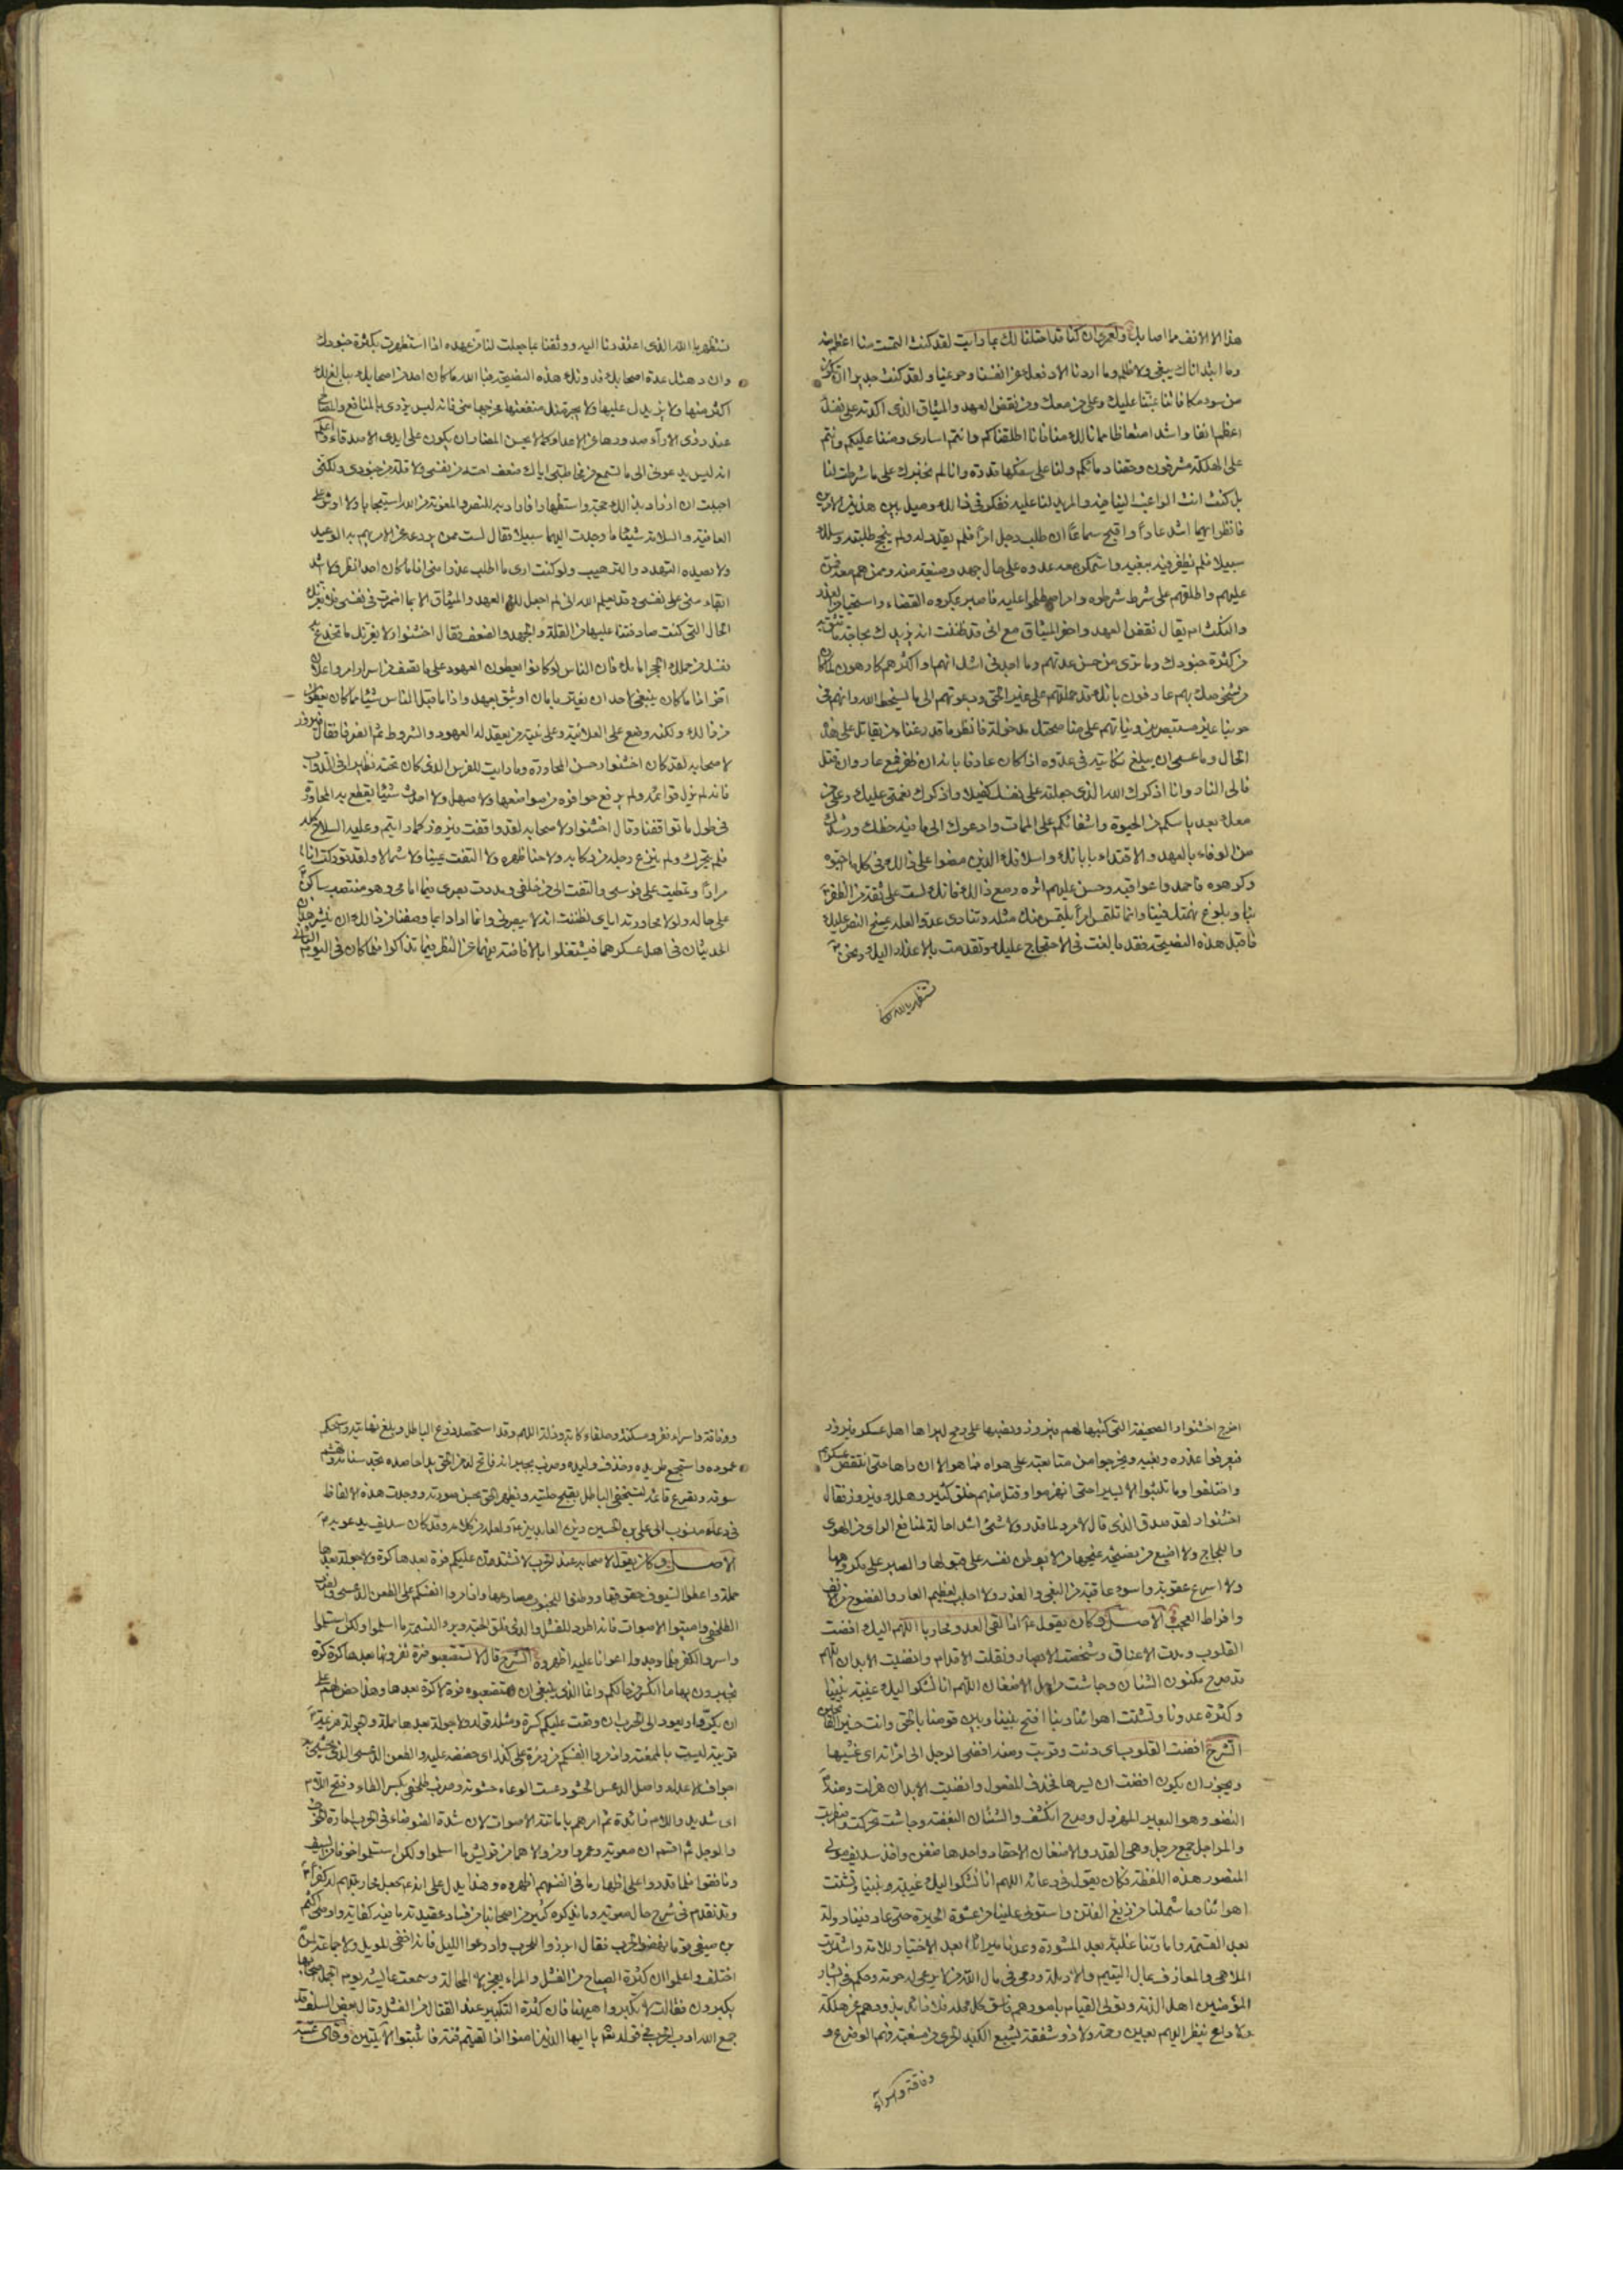 هذا الا الانف مما اصابك ولعمري ان كنا قد احتلنا لك بما رايت لقد كنت التمست منا اعظم منه
وما ابتداناك ببغى ولا ظلم وما اردنا الا دفعك عن انفسنا وحريمنا ولقد كنت جديرا ان تكون
من سوء مكافاتنا بمننا عليك وعلى من معك ومن نقض العهد والميثاق الذى اكدته على نفسك
اعظم انفا واشد امتعاضا مما نالك منا فانا اطلقناكم وانتم اسارى ومننا عليكم وانتم
على الهلكة مشرفون وحقنا دمائكم ولنا على سفكها قدرة وانا لم نجبرك على ما شرطت لنا
بل كنت انت الراغب الينا فيه والمريد لنا عليه ففكر فى ذلك وميل بين هذين الامرين
فانظر ايهما اشد عارا واقبح سماعا ان طلب رجل امرا فلم يقدر له ولم ينجح طلبته وسلك
سبيلا فلم يظفر فيه ببغيه واستمكن منه عدوه على حال جهد وضيعة منه وممن هم معه فمن
عليهم واطلقهم على شرط شرطوه وامر اصطلحوا عليه فاصبر بمكروه القضاء واستحيا من الغدر
والنكث ام يقال نقض العهد واخفر الميثاق مع انى قد ظننت انه يزيدك لجاجة ما تثق به
من كثرة جنودك وما ترى من حسن عدتهم وما اجدنى اشك انهم او اكثرهم كارهون لما كان
من شخوصك بهم عارفون بانك قد حملتهم على غير الحق ودعوتهم الى ما يسخط الله وانهم فى
حربنا غير مستبصرين ونياتهم على مناصحتك مدخولة فانظر ما قدر غناء من يقاتل على هذه
الحال وما عسى ان يبلغ نكايته فى عدوه اذا كان عارفا بانه ان ظفر فمع عار وان قتل
فالى النار وانا اذكرك الله الذى جعلته على نفسك كفيلا واذكرك نعمتى عليك وعلى من
معك بعد ياسكم من الحيوة واشفائكم على الممات وادعوك الى ما فيه حظك ورشدك
من الوفاء بالعهد والاقتداء بابائك واسلافك الذين مضوا على ذلك فى كل ما احبوه
وكرهوه فاحمدوا عواقبه وحسن عليهم اثره ومع ذلك فانك لست على ثقة من الظفر
بنا وبلوغ نهمتك فينا وانما تلتمس امرا يلتمس منك مثله وتنادى عدوا لعله يمنح النصر عليك
فاقبل هذه النصيحة فقد بالغت فى الاحتجاج عليك وتقدمت بالاعذار اليك ونحن
نستظهر بالله
نستظهر بالله الذى اعتذرنا اليه ووثقنا بما جعلت لنا من عهده اذا استظهرت بكثرة جنودك
وازدهتك عدة اصحابك فدونك هذه النصيحة فبالله ما كان احد من اصحابك يبالغ لك
اكثر منها ولا يزيدك عليها ولا يحرمنك منفعتها مخرجها منى فانه ليس يزرى بالمنافع والمصالح
عند ذوى الاراء صدورها عن الاعداء كما لا يحسن المضار ان يكون على ايدى الاصدقاء واعلم
انه ليس يدعونى الى ما تسمع من مخاطبتى اياك ضعف احسه من نفسى ولا قلة من جنودى ولكنى
احببت ان ازداد بذلك حجة واستظهارا فازداد به للنصر والمعونة من الله استيجابا ولا اوثر على
العافية والسلامة شيئا ما وجدت اليهما سبيلا فقال لست ممن يردعه عن الامر يهم به الوعيد
ولا يصده التهدد والترهيب ولو كنت ارى ما اطلب غدرا منى اذا ما كان احد انظر ولا اشد
ابقاء منى على نفسى وقد يعلم الله انى لم اجعل لك العهد والميثاق الا بما اضمرت فى نفسى فلا يغرنك
الحال التى كنت صادفتنا عليها من القلة والجهد والضعف فقال اخشنوار لا يغرنك ما تخدع به
نفسك من حملك الحجر امامك فان الناس لو كانوا يعطون العهود على ما تصف من اسرار امر واعلان
اخر اذا ما كان ينبغى لاحد ان يغتر بامان او يثق بعهد واذا ما قبل الناس شيئا مما كان يعطون
من ذلك ولكنه وضع على العلانية وعلى نية من يعقد له العهود والشروط ثم انصرفا فقال فيروز
لاصحابه لقد كان اخشنوار حسن المحاورة وما رايت للفرس الذى كان تحته نظيرا فى الدواب
فانه لم يزل قوائمه ولم يرفع حوافره من مواضعها ولا صهل ولا احدث شيئا يقطع به المحاورة
فى طول ما تواقفنا وقال اخشنوار لاصحابه لقد واقفت فيروز كما رايتم وعليه السلاح كله
فلم يتحرك ولم ينزع رجله من ركابه ولا حنا ظهره ولا التفت يمينا ولا شمالا ولقد توركت انا
مرارا وتمطيت على فرسى والتفت الى من خلفى ومددت بصرى فيما امامى وهو منتصب ساكن
على حاله ولولا محاورته اياى لظننت انه لا يبصرنى وانما ارادا بما وصفنا من ذلك ان ينتشر هذان
الحديثان فى اهل عسكرهما فيشتغلوا بالافاضة فيهما عن النظر فيما تذاكرا فلما كان فى اليوم الثانى
اخرج اخشنوار الصحيفة التى كتبها لهم فيروز ونصبها على رمح ليراها اهل عسكر فيروز
فيعرفوا غدره وبغيه ويخرجوا من متابعته على هواه فما هو الا ان راها حتى انتقض عسكرهم
واختلفوا وما تلبثوا الا يسيرا حتى انهزموا وقتل منهم خلق كثير وهلك فيروز فقال
اخشنوار لقد صدق الذى قال لا مرد لما قدر ولا شئ اشد احالة لمنافع الراى من الهوى
واللجاج ولا اضيع من نصيحة يمنحها من لا يوطن نفسه على قبولها والصبر على مكروهها
ولا اسرع عقوبة واسوء عاقبة من البغى والغدر ولا اجلب لعظيم العار والفضوح من الانف
وافراط العجب الاصل وكان يقول ع اذا لقى العدو محاربا اللهم اليك افضت
القلوب ومدت الاعناق وشخصت الابصار ونقلت الاقدام وانضيت الابدان اللهم
قد صرح مكنون الشنان وجاشت مراجل الاضغان اللهم انا نشكو اليك غيبة نبينا
وكثرة عدونا وتشتت اهوائنا ربنا افتح بيننا وبين قومنا بالحق وانت خير الفاتحين
الشرح افضت القلوب اى دنت وقربت ومنه افضى الرجل الى امراته اى غشيها
ويجوز ان يكون افضت اى بسرها فحذف المفعول وانضيت الابدان هزلت ومنه
النضو وهو البعير المهزول وصرح انكشف والشنان البغضة وجاشت تحركت واضطربت
والمراجل جمع مرجل وهى القدر والاضغان الاحقاد واحدها ضغن واخذ سديف مولى
المنصور هذه اللفظة فكان يقول فى دعائه اللهم انا نشكو اليك غيبة نبينا وتشتت
اهوائنا وما شملنا من زيغ الفتن واستولى علينا من غشوة الحيرة حتى عاد فيئنا دولة
بعد القسمة وامارتنا غلبة بعد المشورة وعدنا ميراثا بعد الاختيار للامة واشتريت
الملاهى والمعازف بمال اليتيم والارملة ورعى فى مال الله من لا يرعى له حرمة وحكم فى ابشار
المؤمنين اهل الذمة وتولى القيام بامورهم فاسق كل محلة فلا ذائد يذودهم عن هلكة
ولا راع ينظر اليهم بعين رحمة ولا ذو شفقة يشبع الكبد الحرى من مسغبة فهم اولو ضرع و
وفاقة واسراء
وفاقة واسراء فقر ومسكنة وحلفاء كابة وذلة اللهم وقد استحصد زرع الباطل وبلغ نهايته واستحكم
عموده واستجمع طريده وحذف وليده وضرب بجرانه فاتح له من الحق يدا حاصدة تجذ سنامه وتهشم
سوقه وتصرع قائمه ليستخفى الباطل بقبح حليته ويظهر الحق بحسن صورته ووجدت هذه الالفاظ
فى دعاء منسوب الى على بن الحسين زين العابدين ع ولعله من كلامه وقد كان سديف يدعو به
الاصل وكان يقول لاصحابه عند الحرب لا تشتدن عليكم فرة بعدها كرة ولا جولة بعدها
حملة واعطوا السيوف حقوقها ووطنوا للجنوب مصارعها واذمروا انفسكم على الطعن الدعسى والضرب
الطلحفى واميتوا الاصوات فانه اطرد للفشل والذى فلق الحبة وبرء النسمة ما اسلموا ولكن استسلموا
واسروا الكفر فلما وجدوا اعوانا عليه اظهروه الشرح قال لا تستصعبوا فرة تفرونها بعدها كرة
تجبرون بها ما انكسر من حالكم وانما الذى ينبغى ان تستصعبوه فرة لا كرة بعدها وهذا حض لهم على
ان يكروا ويعودوا الى الحرب ان وقعت عليكم كسرة ومثله قوله ولا جولة بعدها حملة والجولة هزيمة
قريبة ليست بالممعنة واذمروا انفسكم من ذمره على كذا اى حضه عليه والطعن الدعسى الذى يحشى به
اجواف الاعداء واصل الدعس الحشو دعست الوعاء حشوته وضرب طلحفى بكسر الطاء وفتح اللام
اى شديد واللام زائدة ثم امرهم باماتة الاصوات لان شدة الضوضاء فى الحرب امارة الخوف
والوجل ثم اقسم ان معوية وعمروا ومن والاهما من قريش ما اسلموا ولكن استسلموا خوفا من السيف
ونافقوا فلما قدروا على اظهار ما فى انفسهم اظهروه وهذا يدل على انه ع جعل محاربتهم له كفرا
وقد تقدم فى شرح حال معوية وما يذكره كثير من اصحابنا من فساد عقيدته ما فيه كفاية واوصى اكثم
بن صيفى قوما نهضوا الى الحرب فقال ابرزوا للحرب وادرعوا الليل فانه اخفى للويل ولا جماعة لمن
اختلف واعلموا ان كثرة الصياح من الفشل والمرء يعجز لا المحالة وسمعت عايشة يوم الجمل اصحابها
يكبرون فقالت لا تكبروا ههنا فان كثرة التكبير عند القتال من الفشل وقال بعض السلف قد
جمع الله ادب الحرب فى قوله تعالى يا ايها الذين امنوا اذا لقيتم فئة فاثبتوا الايتين وقال عتبة